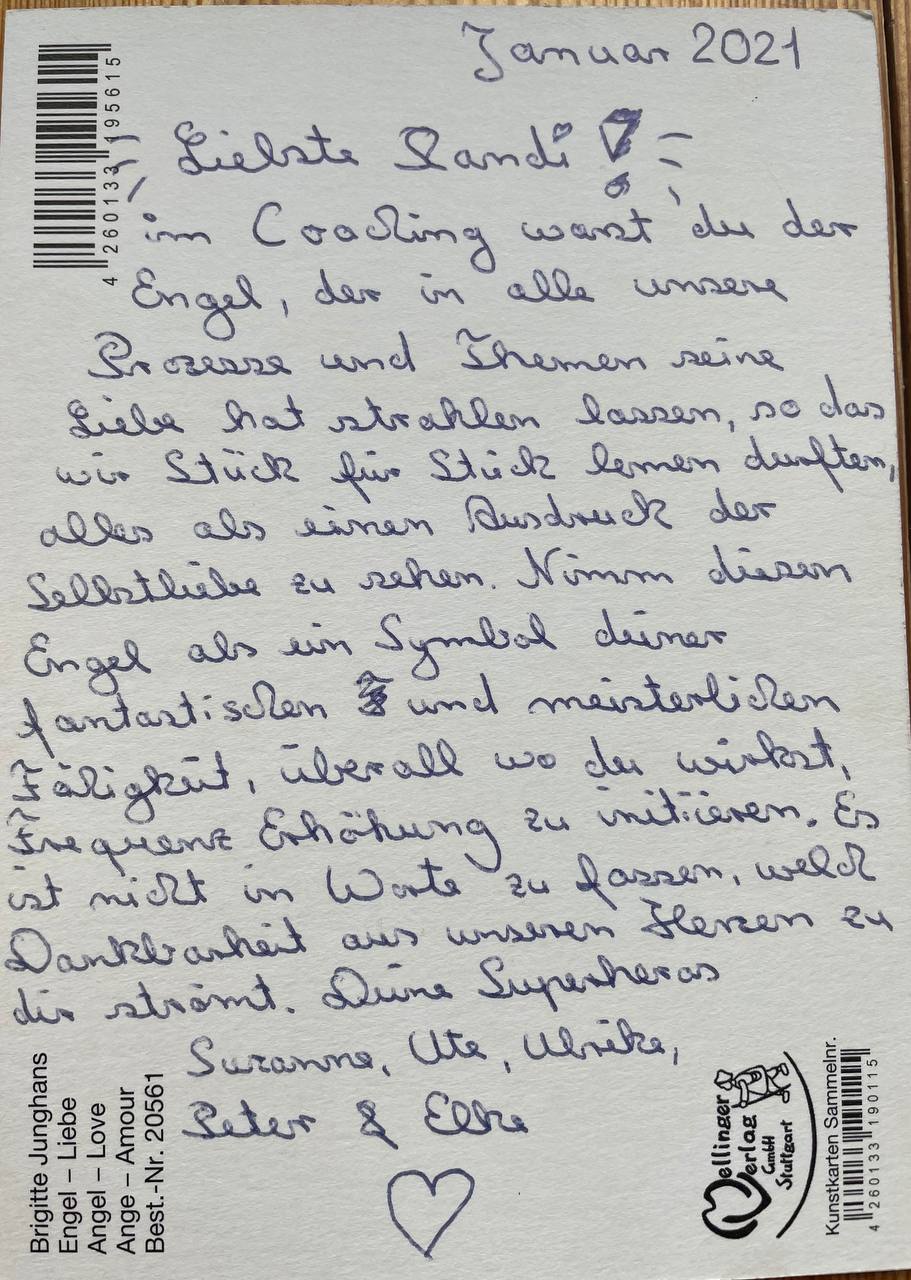 Januar 2021
Liebste Randi!
im Coaching warst du der
Engel, der in alle unsere
Prozesse und Themen seine
Liebe hat strahlen lassen, so das
wir Stück für Stück lernen durften,
alles als einen Ausdruck der
Selbstliebe zu sehen. Nimm diesen
Engel als ein Symbol deiner
fantastischen und meisterlichen
Fähigkeit, überall wo du wirkst,
Frequenz Erhöhung zu initiieren. Es
ist nicht in Worte zu fassen, welch
Dankbarkeit aus unseren Herzen zu
dir strömt. Deine Superheros
Susanne, Ute, Ulrike,
Peter & Elke
4 260133 195615
Brigitte Junghans
Engel – Liebe
Angel – Love
Ange – Amour
Best.-Nr. 20561
Mellinger
Verlag
GmbH
Stuttgart
Kunstkarten Sammelnr.
4 260133 190115